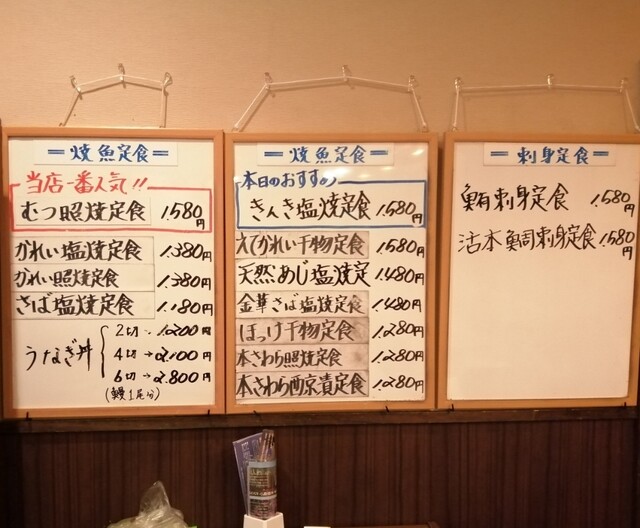 =焼魚定食=
当店一番人気!!
むつ照焼定食 1,580円
かれい塩焼定食 1,380円
かれい照焼定食 1,380円
さば塩焼定食 1,180円
うなぎ丼
2切→1,200円
4切→2,100円
6切→2,800円
(鰻1尾分)
=焼魚定食=
本日のおすすめ
きんき塩焼定食 1,580円
えてかれい干物定食 1,580円
天然めじ塩焼定 1,480円
金華さば塩焼定食 1,480円
ほっけ干物定食 1,280円
本さわら照焼定食 1,280円
本さわら西京漬定食 1,280円
=刺身定食=
鮪刺身定食 1,580円
活本鯛刺身定食 1,580円